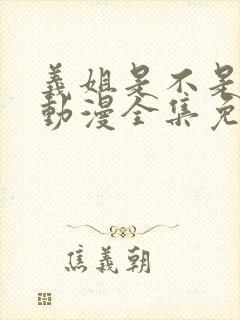 義姐是不是
動漫全集免
焦義朝